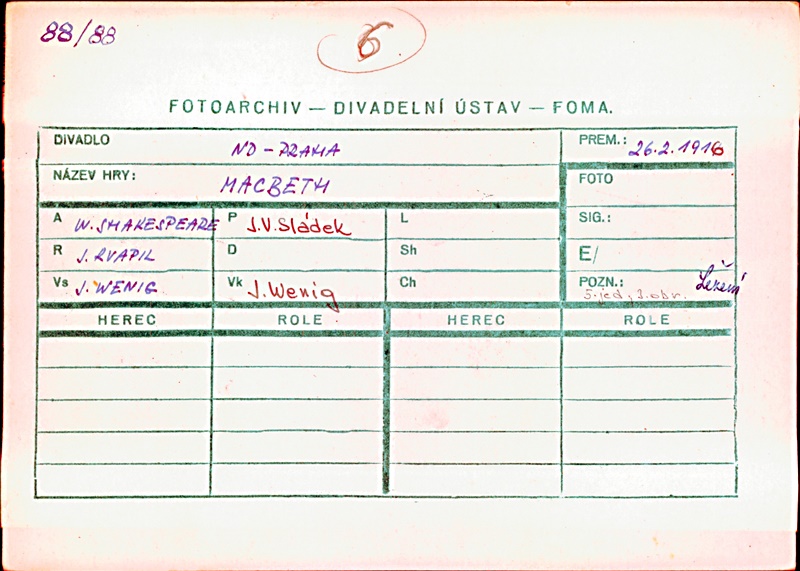 88/88
6
FOTOARCHIV — DIVADELNÍ ÚSTAV — FOMA.
DIVADLO ND - PRAHA PREM.: 26.2.1916
NÁZEV HRY: MACBETH FOTO
A W. SHAKESPEARE P J.V. Sládek L SIG.:
R J. KVAPIL D Sh E/
Vs J. WENIG Vk J. Wenig Ch POZN.:
5. jed., 3. obr.
HEREC ROLE HEREC ROLE